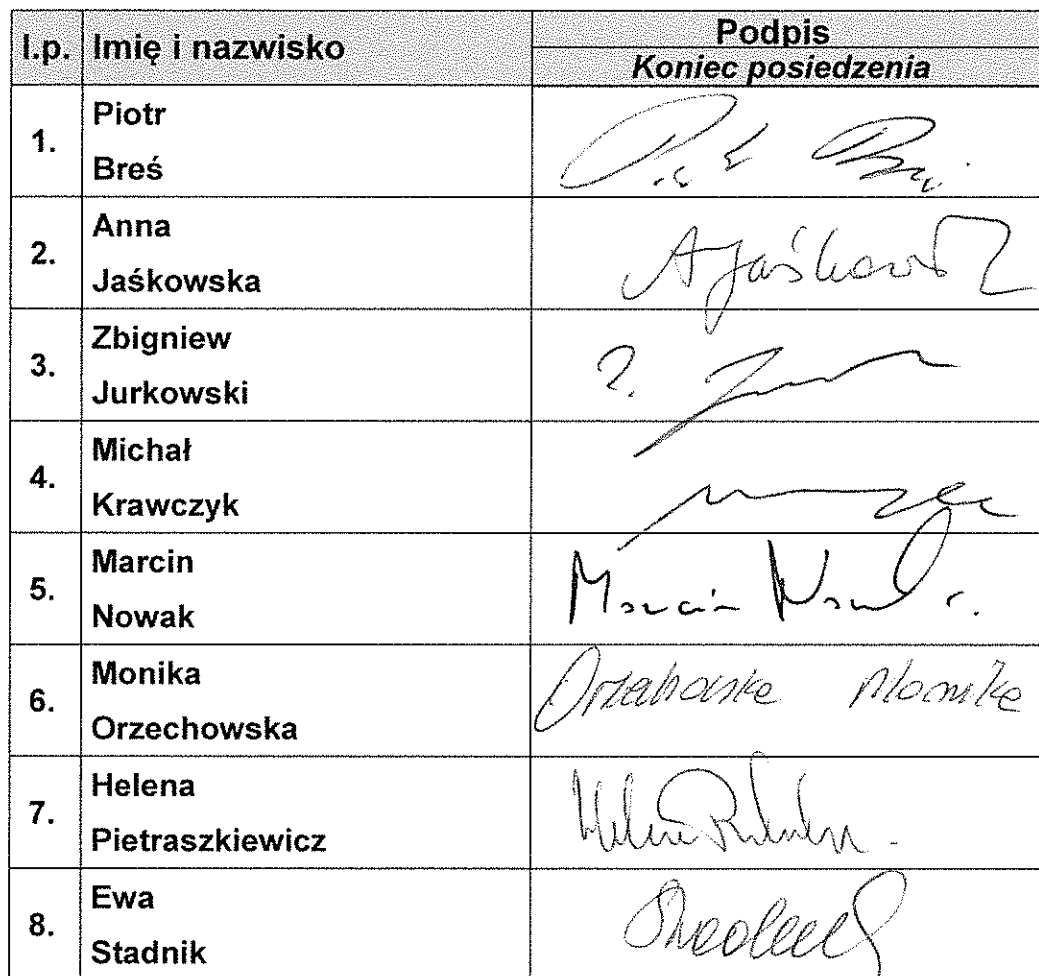 l.p. Imię i nazwisko Podpis
Koniec posiedzenia
1. Piotr
Breś
2. Anna
Jaśkowska
AJaśkowska
3. Zbigniew
Jurkowski
4. Michał
Krawczyk
5. Marcin
Nowak
Marcin Nowak
6. Monika
Orzechowska
Orzechowska Monika
7. Helena
Pietraszkiewicz
Helena
8. Ewa
Stadnik